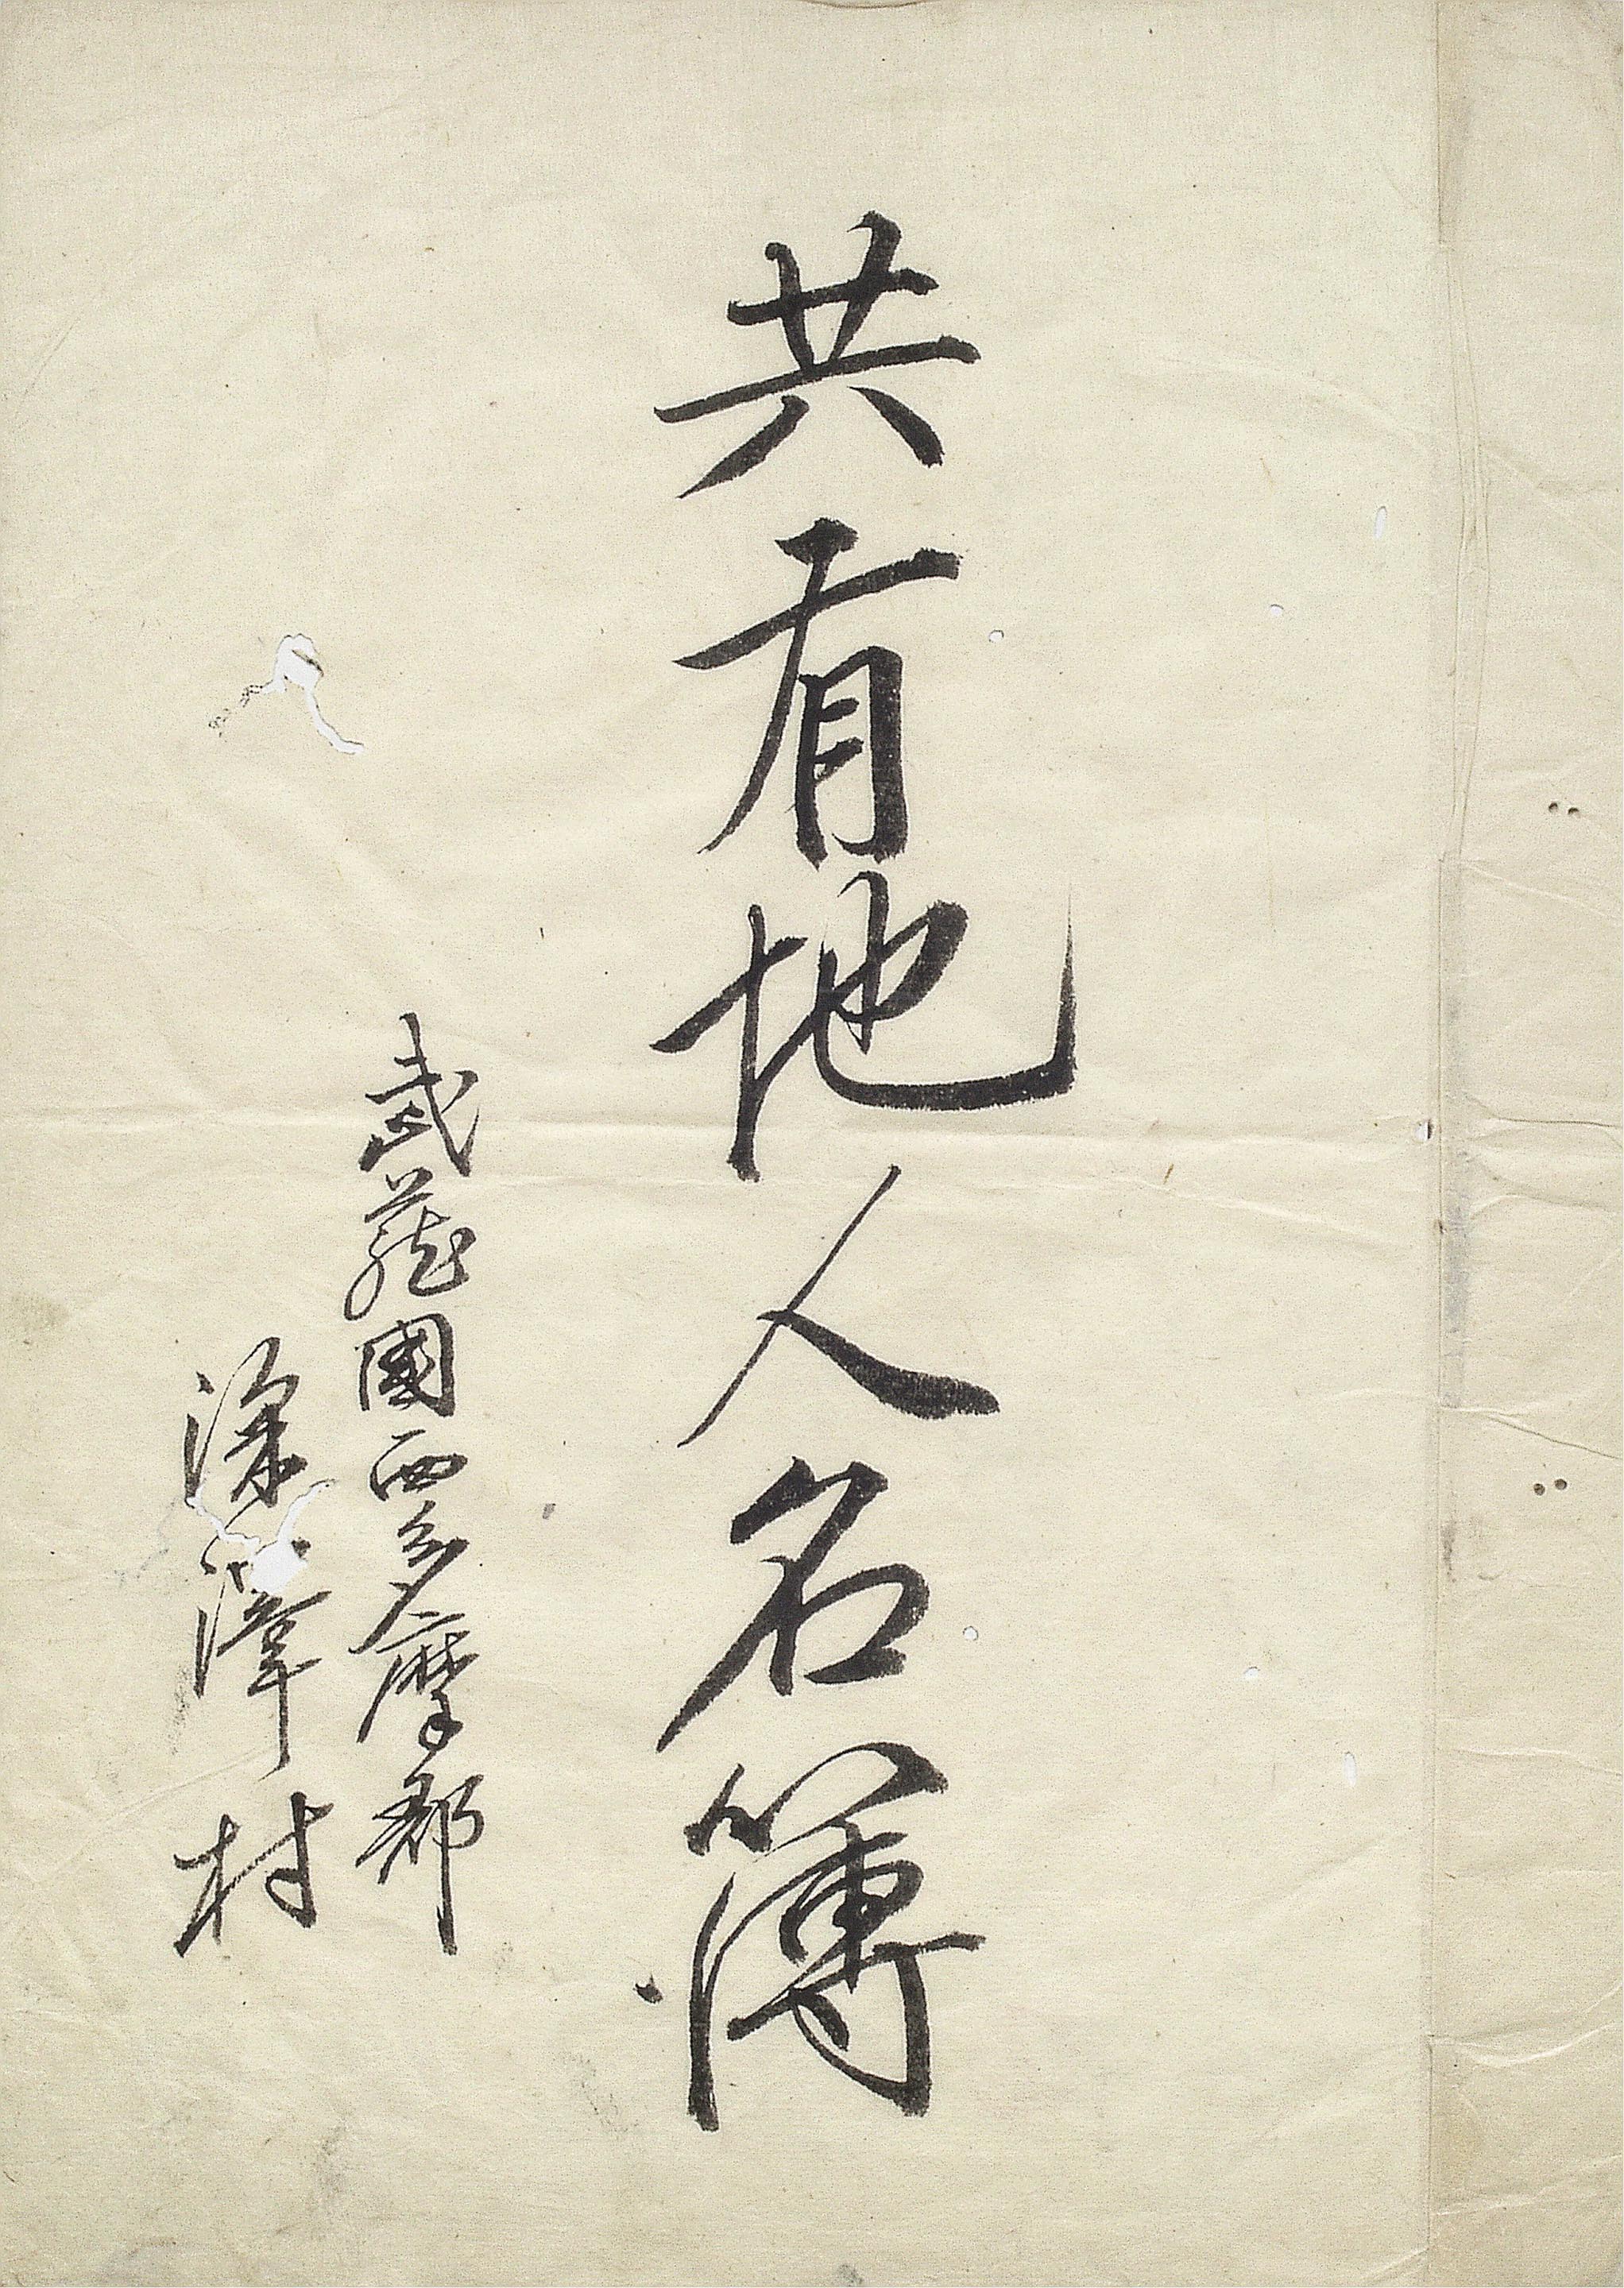 共有地人名簿
武蔵國西多摩郡
深澤村